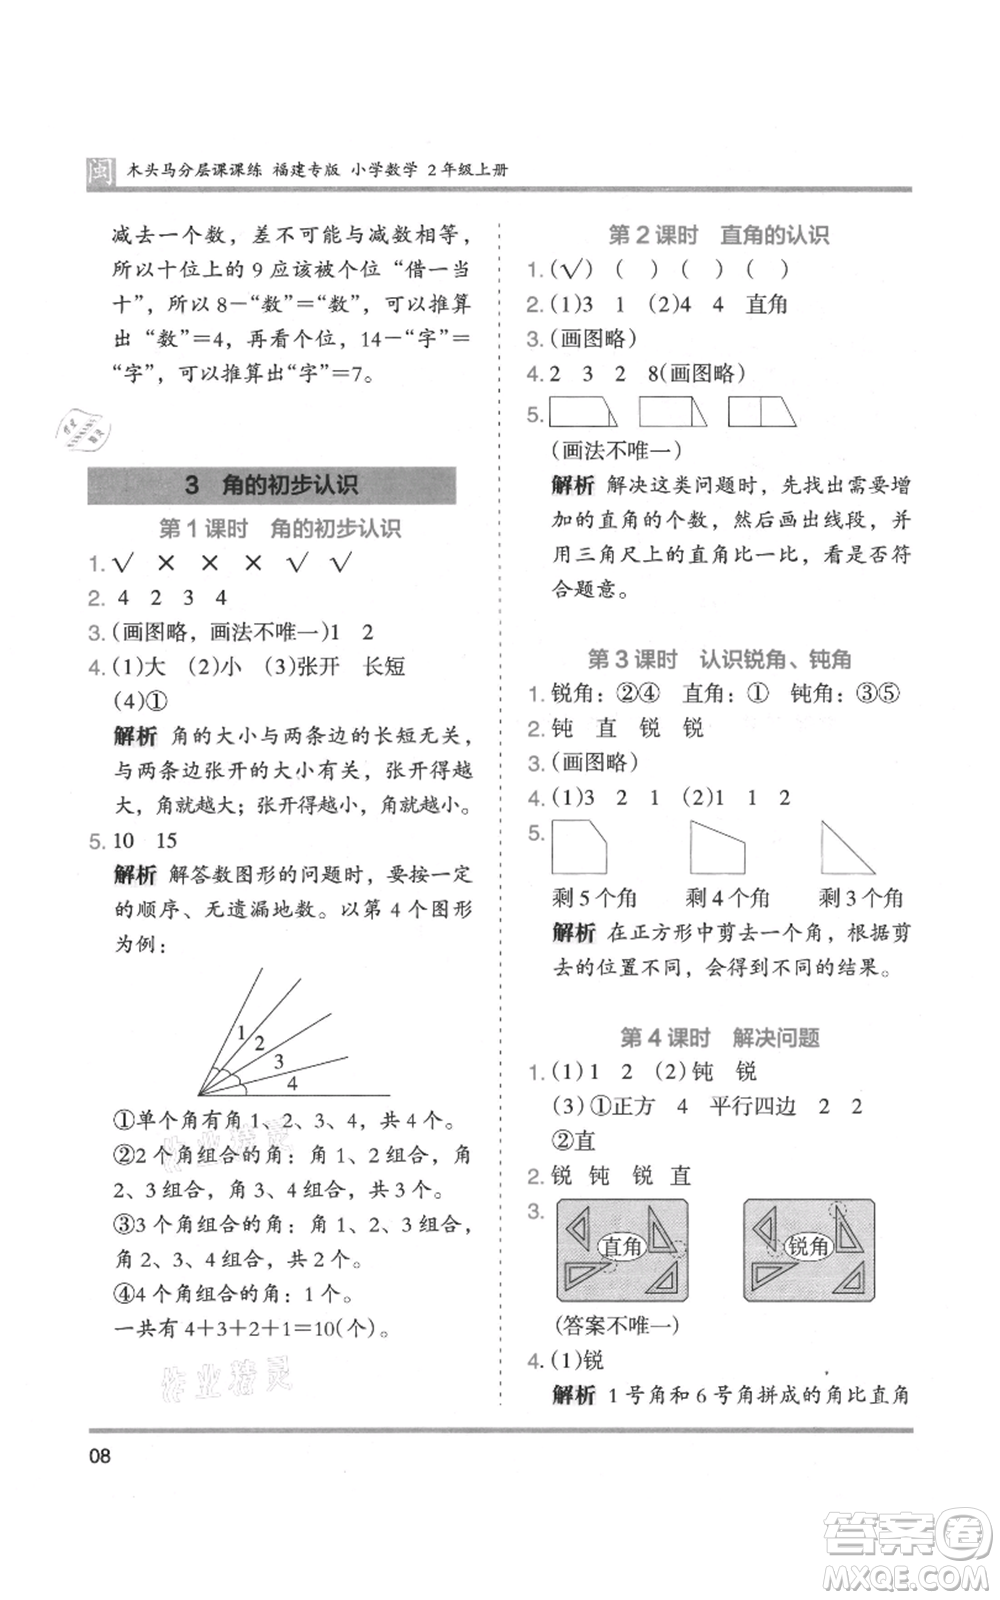 闽 木头马分层课课练 福建专版 小学数学 2年级上册
减去一个数，差不可能与减数相等，
所以十位上的9应该被个位“借一当
十”，所以8－“数”＝“数”，可以推算
出“数”＝4，再看个位，14－“字”＝
“字”，可以推算出“字”＝7。
3 角的初步认识
第1课时 角的初步认识
1. √ × × × √ √
2. 4 2 3 4
3. (画图略，画法不唯一)1 2
4. (1)大 (2)小 (3)张开 长短
(4)①
解析 角的大小与两条边的长短无关，
与两条边张开的大小有关，张开得越
大，角就越大；张开得越小，角就越小。
5. 10 15
解析 解答数图形的问题时，要按一定
的顺序、无遗漏地数。以第4个图形
为例：
1
2
3
4
①单个角有角1、2、3、4，共4个。
②2个角组合的角：角1、2组合，角
2、3组合，角3、4组合，共3个。
③3个角组合的角：角1、2、3组合，
角2、3、4组合，共2个。
④4个角组合的角：1个。
一共有4＋3＋2＋1＝10(个)。
作业精灵
作业精灵
08
第2课时 直角的认识
1. (√) ( ) ( ) ( )
2. (1)3 1 (2)4 4 直角
3. (画图略)
4. 2 3 2 8(画图略)
5.
(画法不唯一)
解析 解决这类问题时，先找出要增
加的直角的个数，然后画出线段，并
用三角尺上的直角比一比，看是否符
合题意。
第3课时 认识锐角、钝角
1. 锐角：②④ 直角：① 钝角：③⑤
2. 钝 直 锐 锐
3. (画图略)
4. (1)3 2 1 (2)1 1 2
5.
剩5个角 剩4个角 剩3个角
解析 在正方形中剪去一个角，根据剪
去的位置不同，会得到不同的结果。
第4课时 解决问题
1. (1)1 2 (2)钝 锐
(3)①正方 4 平行四边 2 2
②直
2. 锐 钝 锐 直
3. 直角 锐角
(答案不唯一)
4. (1)锐
解析 1号角和6号角拼成的角比直角
答案卷
MXQE.COM